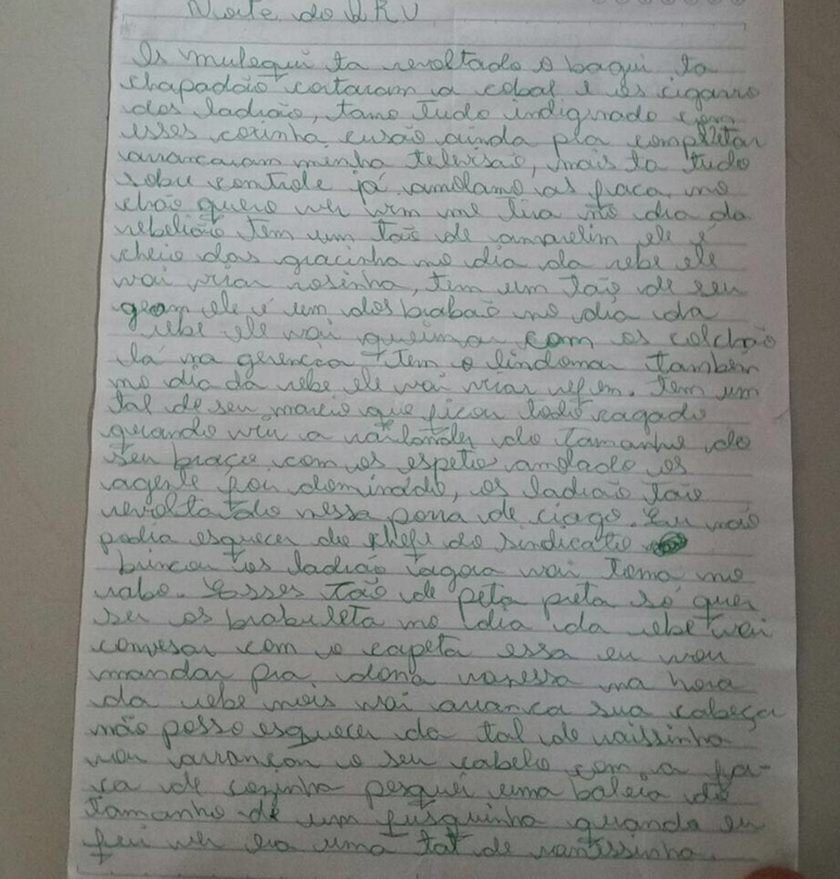 Morte do DRU
Os mulequi ta revoltado o baqui ta
chapadão cortaram a cobal e os cigarro
dos ladrão, tamo tudo indignado com
esses coxinha cusão ainda pra completar
arrancaram minha televisão, mais ta tudo
sobu controle já amolamo as faca no
chão quero ver vim me tira no dia da
rebelião tem um tao de amarelim ele é
cheio das gracinha no dia da rebe ele
vai virar rosinha, tem um tao de seu
geam ele é um dos brabão no dia da
rebe ele vai queimar com os colchão
lá na gerencia. Tem o lindomar tambem
no dia da rebe ele vai virar refem. Tem um
tal de seu marcio que ficou todo cagado
quando viu a do tamanho do
seu braço com os espeto amolado os
agente foi dominado, os ladrão tão
revoltado nessa porra de ciago. Eu não
podia esquecer do chefe do sindicato
brincou os ladrão agora vai toma no
rabo. Esses tao de peta preta só quer
ser os brabuleta no dia da rebe vai
conversar com o capeta essa eu vou
mandar pra dona vanessa na hora
da rebe nois vai arranca sua cabeça
não posso esquecer da tal de raissinha
vou arrancar o seu cabelo com a fa-
ca de cozinha pesquei uma baleia do
tamanho de um fusquinha quando eu
fui ver era uma tal de